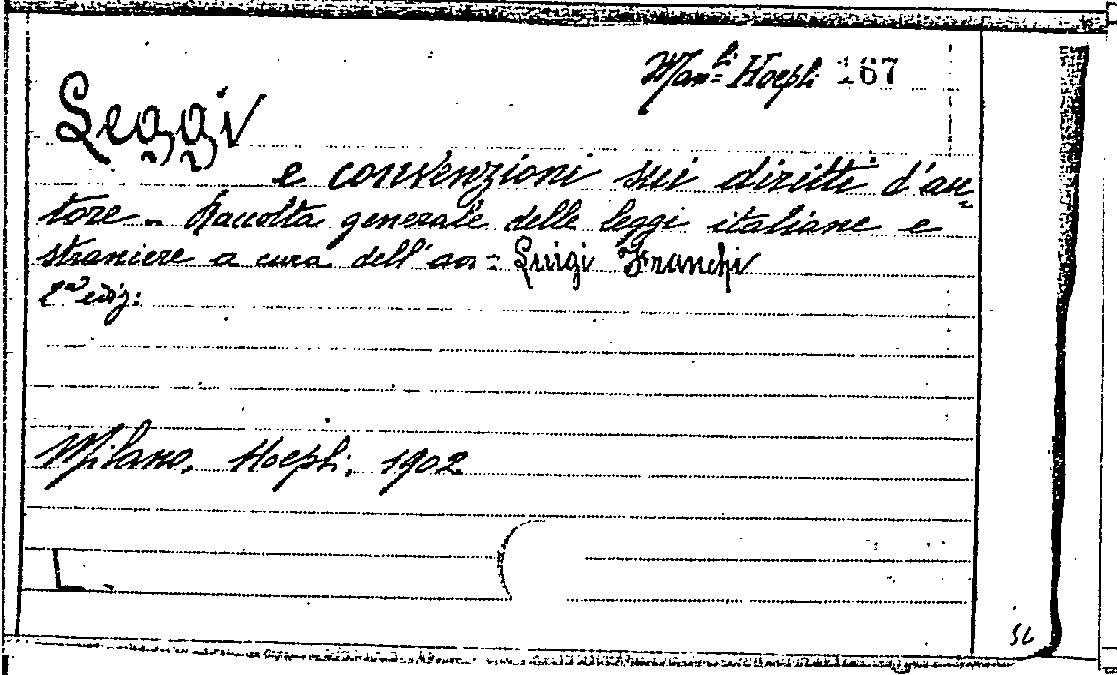 Man.li Hoepli 167
Leggi
e convenzioni sui diritti d'au-
tore - Raccolta generale delle leggi italiane e
straniere a cura dell'avv: Luigi Franchi
2ª ediz:
Milano, Hoepli, 1902